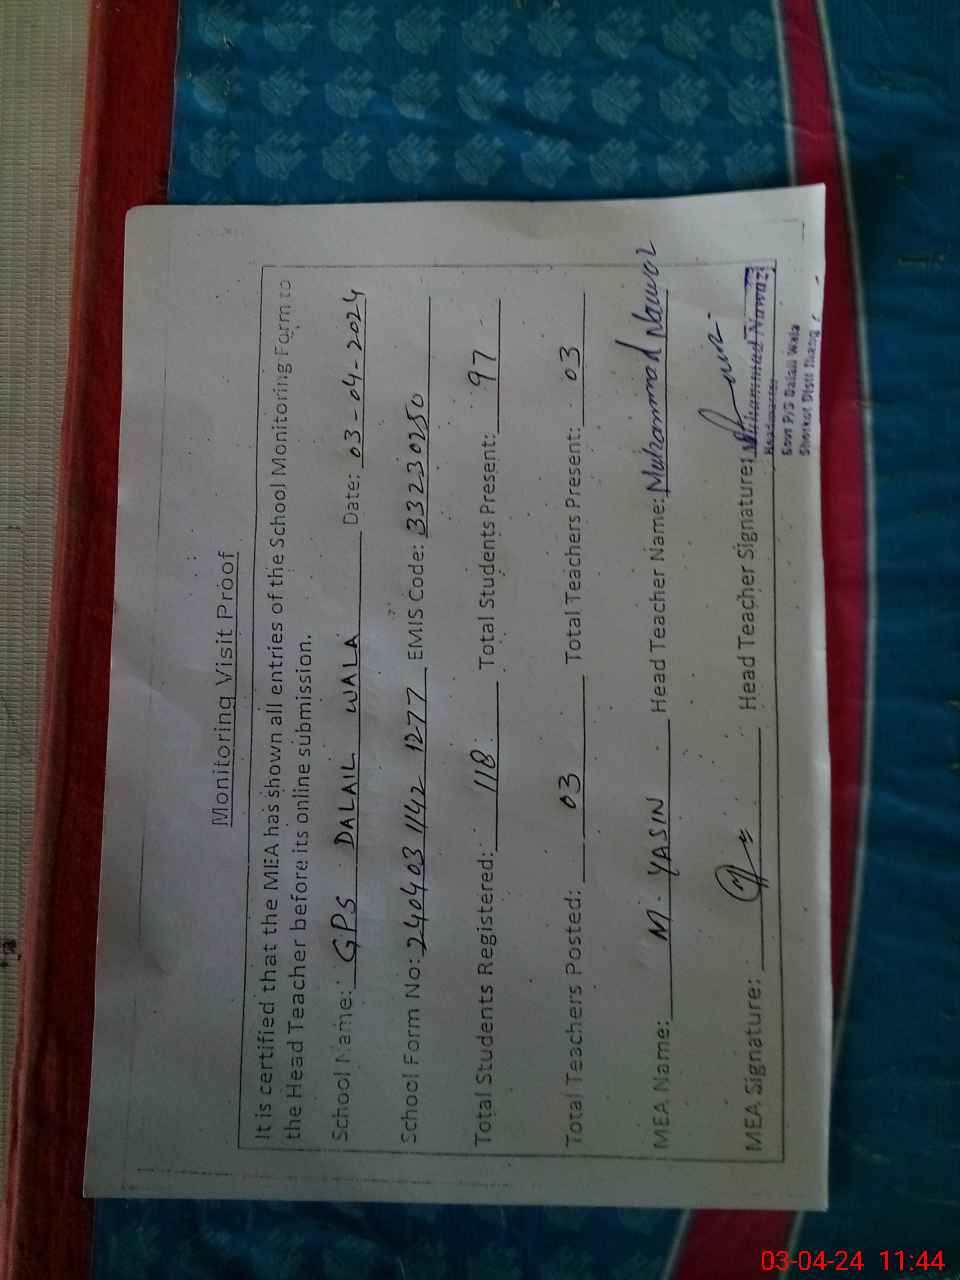 Monitoring Visit Proof
It is certified that the MEA has shown all entries of the School Monitoring Form to
the Head Teacher before its online submission.
School Name: GPS DALAIL WALA Date: 03-04-2024
School Form No: 240403 1142 1277 EMIS Code: 33230250
Total Students Registered: 118 Total Students Present: 97
Total Teachers Posted: 03 Total Teachers Present: 03
MEA Name: M. YASIN Head Teacher Name: Muhammad Nawaz
MEA Signature: Head Teacher Signature:
Muhammad Nawaz
Headmaster
Govt P/S Dalail Wala
Shorkot Distt Jhang
03-04-24 11:44